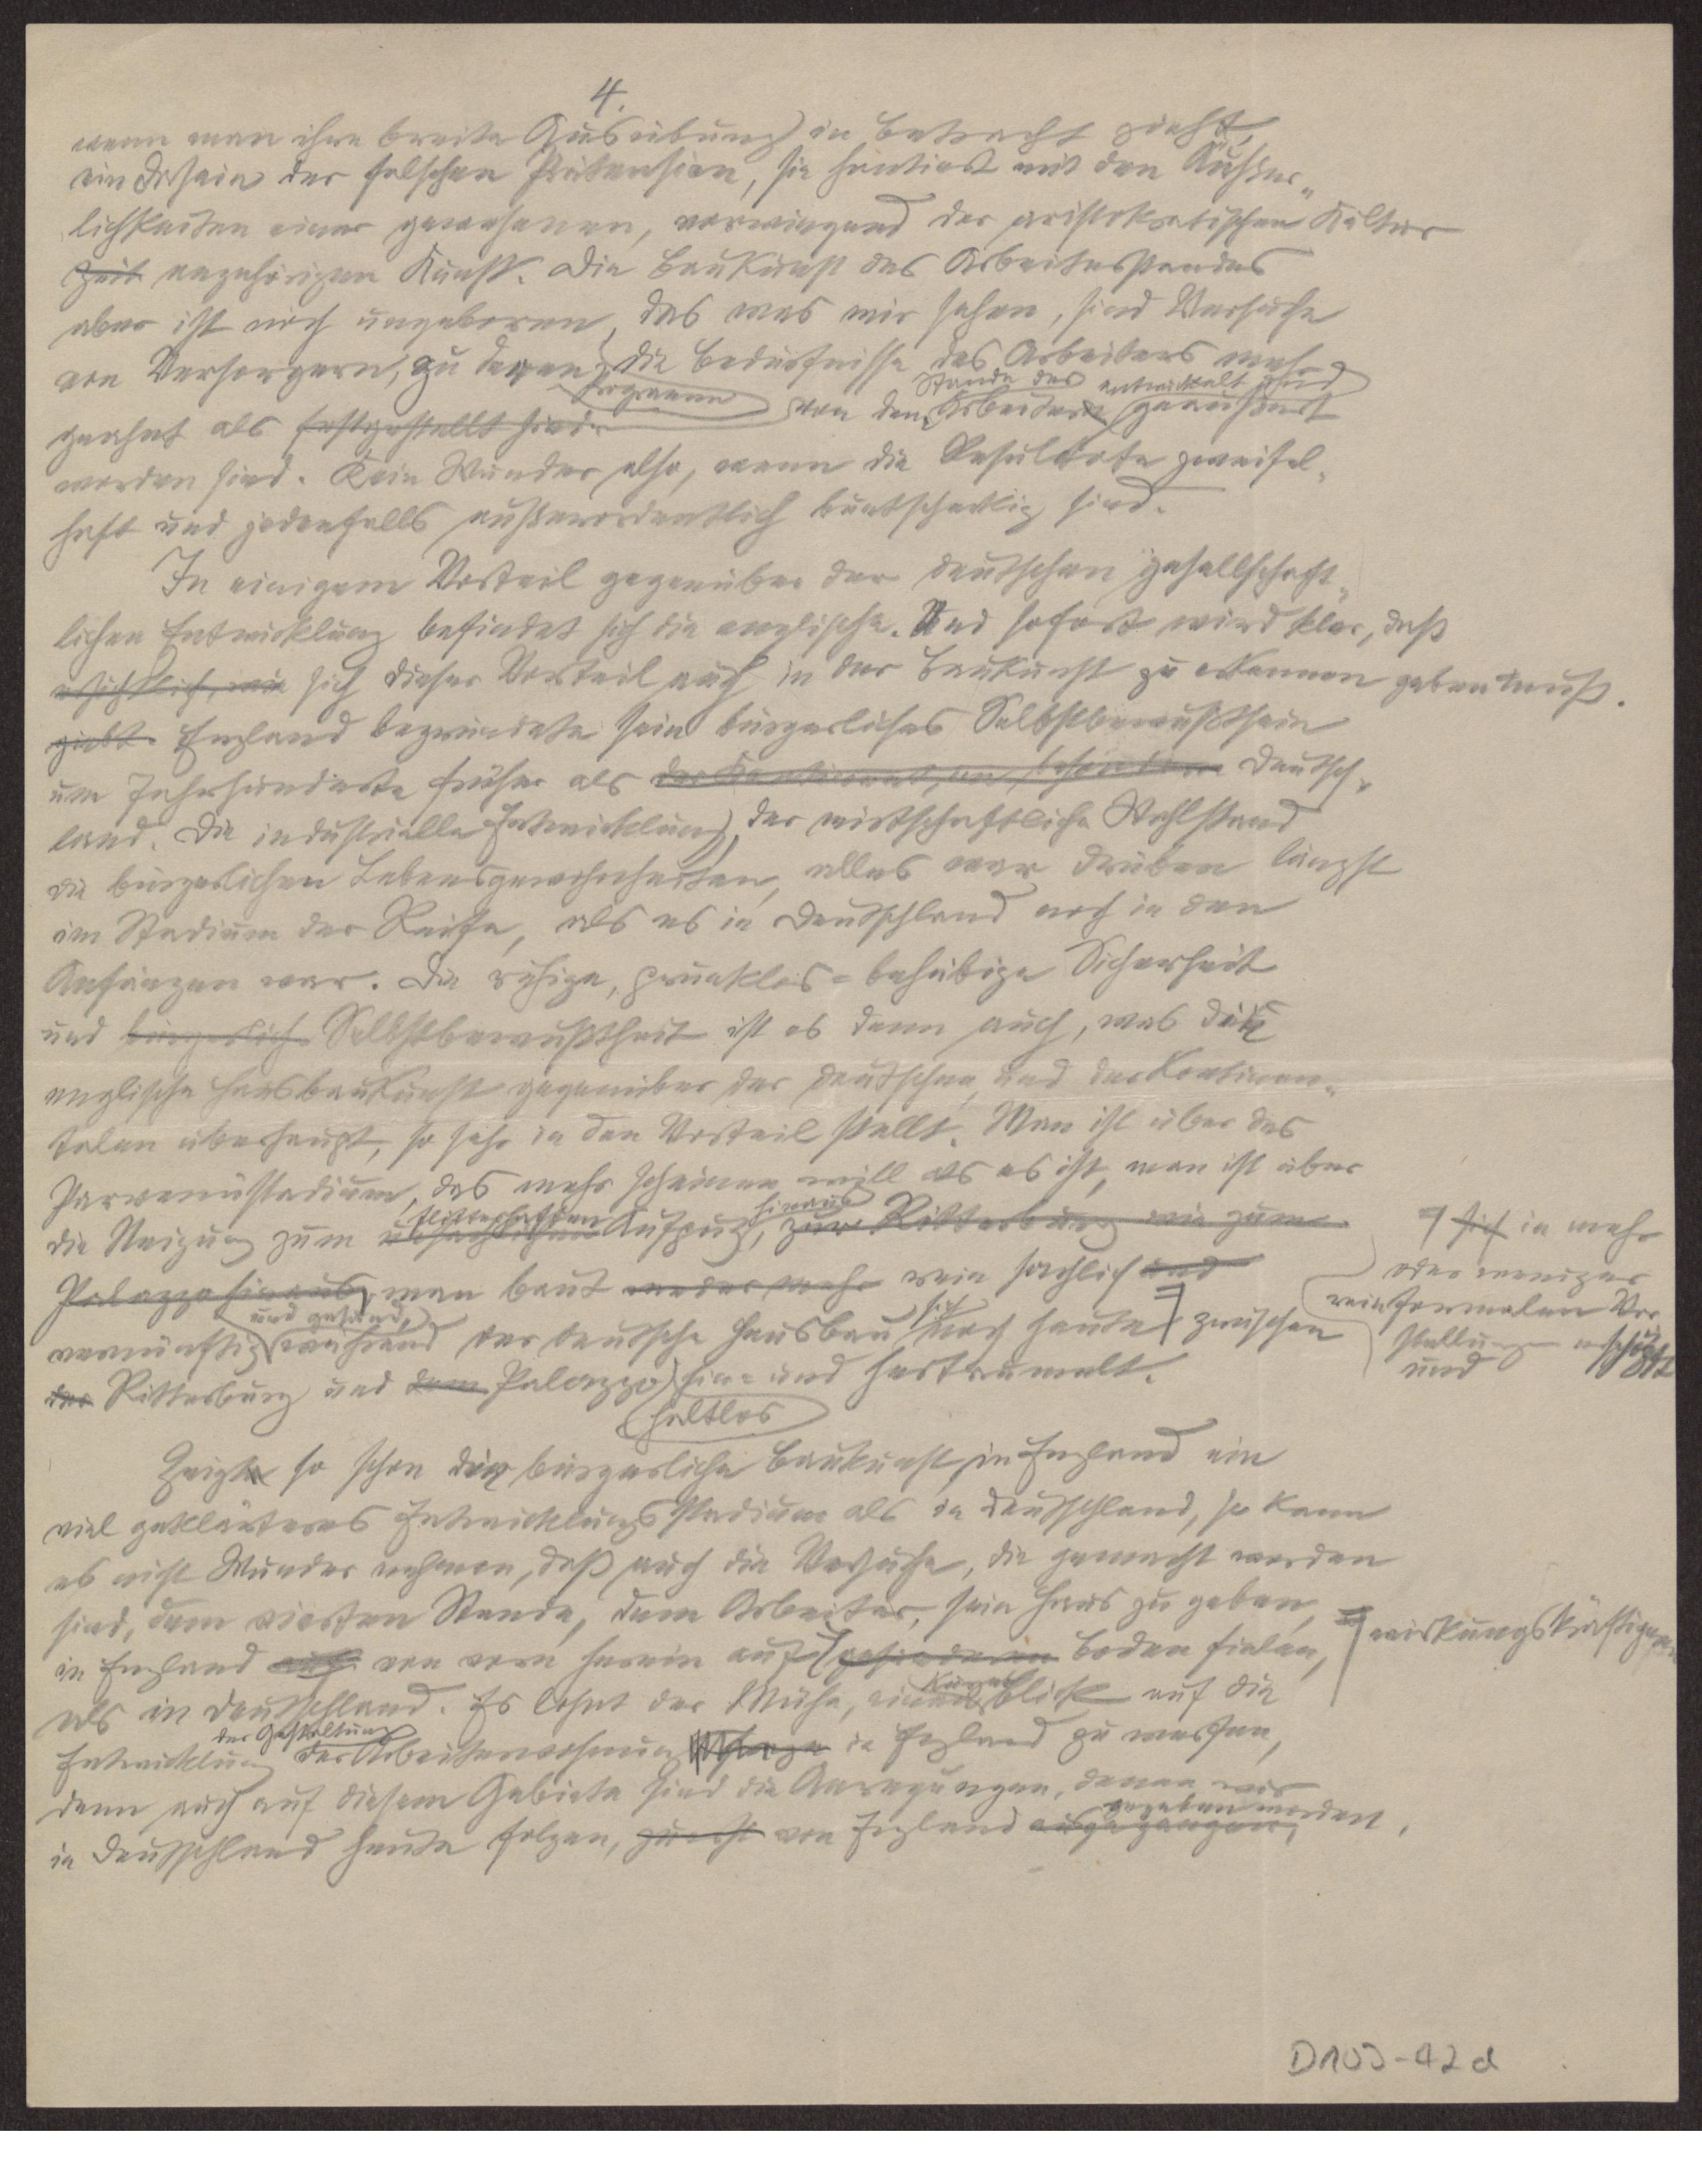 4.
wenn man ihre breite Ausübung in Betracht zieht,
ein Dasein der falschen Prätension, sie hantiert mit den Äußer-
lichkeiten einer gewesenen, vorwiegend der aristokratischen Kultur
zeit angehörigen Kunst. Die Baukunst des Arbeiterstandes
aber ist noch ungeboren, das was wir sehen, sind Versuche
von Versorgern, zu denen die Bedürfnisse des Arbeiters mehr
Programm Stande der entwickelt und
geahnt als festgestellt sind von den Arbeitern geäußert
worden sind. Kein Wunder also, wenn die Resultate zweifel-
haft und jedenfalls außerordentlich buntscheckig sind.
In einigem Vorteil gegenüber der deutschen gesellschaft-
lichen Entwicklung befindet sich die englische. Und sofort wird klar, daß
sich dieser Vorteil auch in der Baukunst zu erkennen geben muß.
giebt. England begründete sein bürgerliches Selbstbewußtsein
um Jahrhunderte früher als der Kontinent, im besonderen Deutsch-
land. Die industrielle Entwicklung, der wirtschaftliche Wohlstand
die bürgerlichen Lebensgewohnheiten, alles war drüben längst
im Stadium der Reife, als es in Deutschland noch in den
Anfängen war. Die ruhige, prunklos-behäbige Sicherheit
und bürgerliche Selbstbewußtheit ist es denn auch, was die
englische Hausbaukunst gegenüber der deutschen, und der kontinen-
talen überhaupt, so sehr in den Vorteil stellt. Man ist über das
Parvenüstadium, das mehr scheinen will als es ist, man ist über
flitterhaften hinaus
die Neigung zum Aufputz, zur Ritterburg wie zum
Palazzo hinaus, man baut weder mehr rein sachlich und
und gesund, sich
vernünftig während der deutsche Hausbau noch heute zwischen
der Ritterburg und dem Palazzo hin- und hertaumelt.
haltlos
sich in mehr
oder weniger
rein formalen Vor
stellungen erschöpft
und
Zeigte so schon die bürgerliche Baukunst in England ein
viel geklärteres Entwicklungsstadium als in Deutschland, so kann
es nicht Wunder nehmen, daß auch die Versuche, die gemacht worden
sind, dem vierten Stande, dem Arbeiter, sein Haus zu geben,
in England auch von vorn herein auf gesünderen Boden fielen,
wirkungskräftigeren
als in Deutschland. Es lohnt der Mühe, einen kurzen Blick auf die
der Gestaltung
Entwicklung der Arbeiterwohnung in England zu werfen,
denn auch auf diesem Gebiete sind die Anregungen, denen wir
gegeben worden.
in Deutschland heute folgen, zuerst von England ausgegangen,
D103-42d